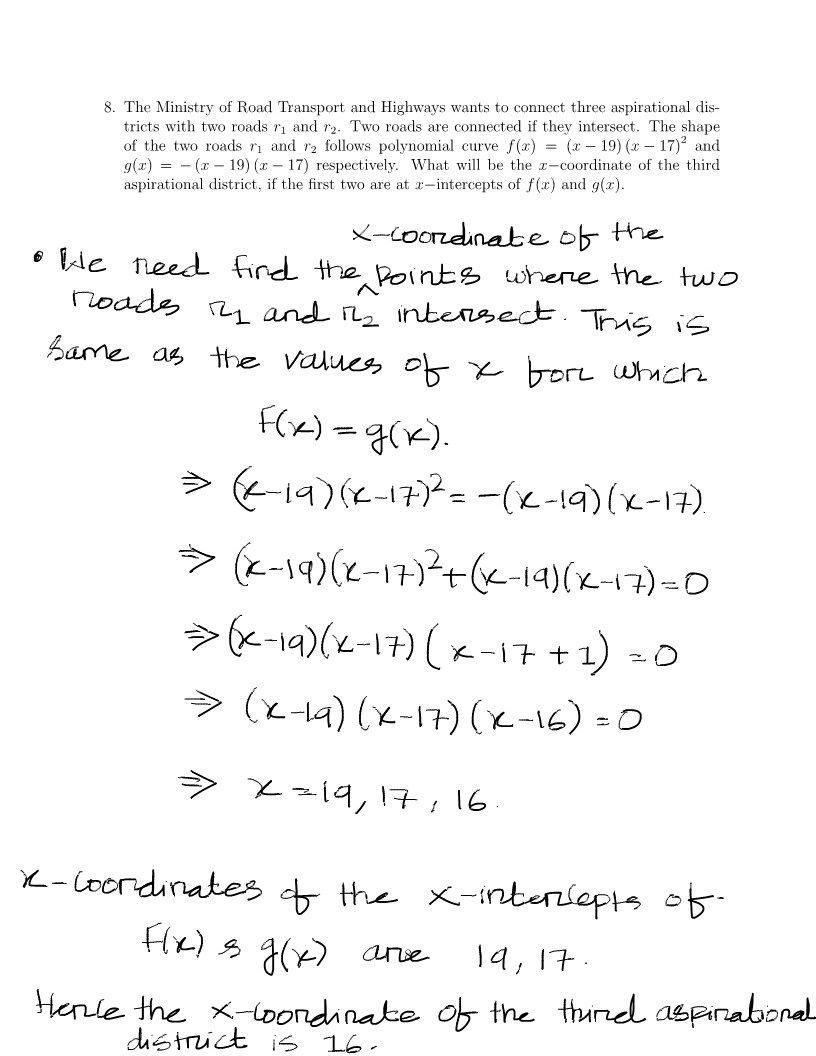 8. The Ministry of Road Transport and Highways wants to connect three aspirational dis-
tricts with two roads r₁ and r₂. Two roads are connected if they intersect. The shape
of the two roads r₁ and r₂ follows polynomial curve f(x) = (x − 19) (x − 17)² and
g(x) = − (x − 19) (x − 17) respectively. What will be the x−coordinate of the third
aspirational district, if the first two are at x−intercepts of f(x) and g(x).
x-coordinate of the
• We need find the ^ points where the two
roads r₁ and r₂ intersect. This is
same as the values of x for which
f(x) = g(x).
⇒ (x-19)(x-17)² = -(x-19)(x-17).
⇒ (x-19)(x-17)²+(x-19)(x-17)=0
⇒ (x-19)(x-17)(x-17+1) = 0
⇒ (x-19)(x-17)(x-16) = 0
⇒ x = 19, 17, 16.
x-coordinates of the x-intercepts of
f(x) & g(x) are 19, 17.
Hence the x-coordinate of the third aspirational
district is 16.